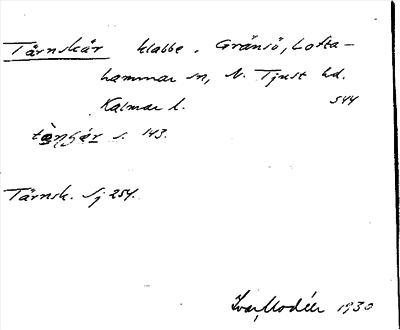 Tärnskär klabbe. Gränsö, Lofta-
hammar sn, N. Tjust hd.
Kalmar l. 544
s. 143.
Tärnsk. Sj 254.
Ivar Modéer 1930